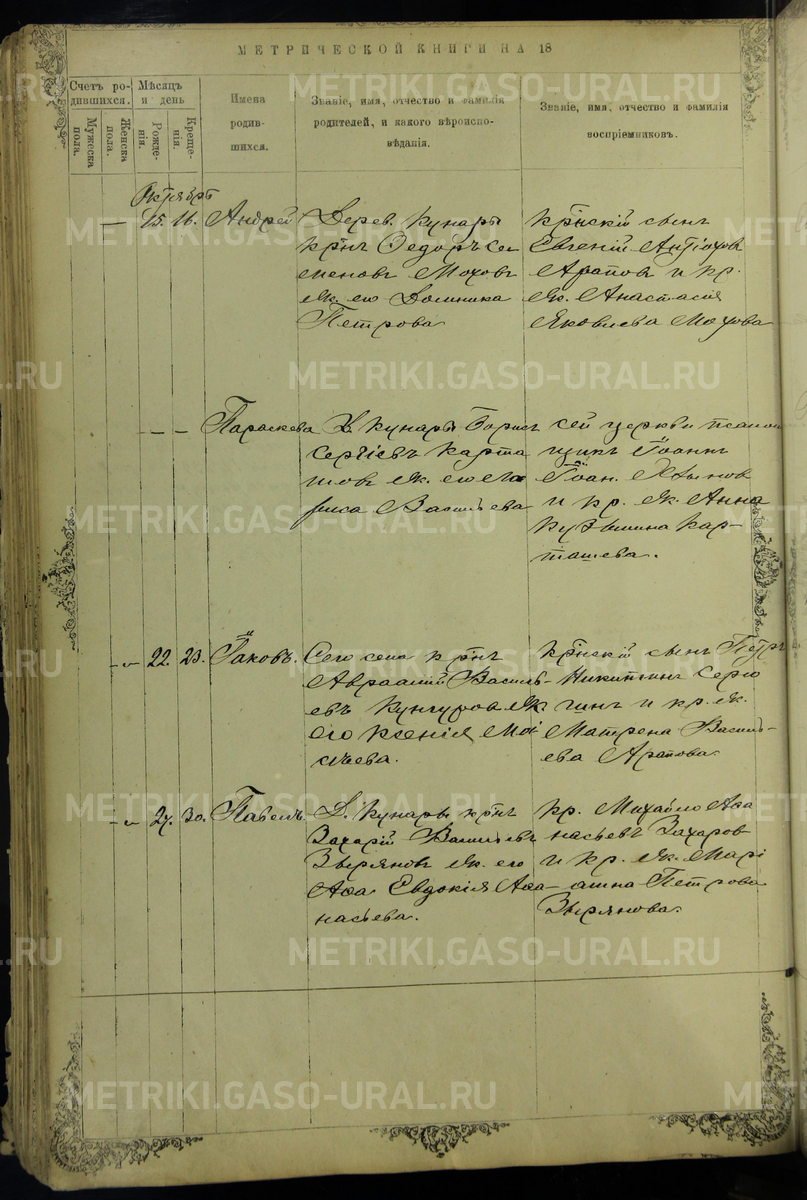 МЕТРИЧЕСКОЙ КНИГИ НА 18
Счетъ ро-
дившихся.
Мужеска
пола.
Женска
пола.
Мѣсяцъ
и день
Рожде-
нія.
Креще-
нія.
Имена
родив-
шихся.
Званіе, имя, отчество и фамилія
родителей, и какого вѣроиспо-
вѣданія.
Званіе, имя, отчество и фамилія
воспріемниковъ.
Октябрь
— 15. 16. Андрей
Дерев. Кунары
крнъ Ѳедоръ Се
меновъ Моховъ
и ж. его Домника
Петрова
Крнскій сынъ
Евгеній Антіохов
Арапов и кр.
ж. Анастасія
Яковлева Мохова
— — — Параскева
Д. Кунары Борисъ
Сергіевъ Карта
шов и ж. его Ла
риса Васильева
сей церкви псалом
щикъ Іоаннъ
Іоан.
и кр. ж. Анна
Кузьмина Кар-
ташева.
-"- 22. 23. Іаковъ.
Сего села крнъ
Авраамій Василь-
евъ Кунгуров и ж
его Ксенія Мои
сѣева.
Крнскій сынъ Петръ
Никитинъ Серго
гинъ и кр. ж.
Матрена Василь-
ева Арапова.
-"- 27. 30. Павелъ.
Д. Кунары крнъ
Захарій Васильевъ
Зыряновъ и ж. его
Евдокія Аѳа-
насьева.
кр. Михайло Аѳа
насьевъ Захаров
и кр. ж. Марі
анна Петрова
Зырянова.
METRIKI.GASO-URAL.RU